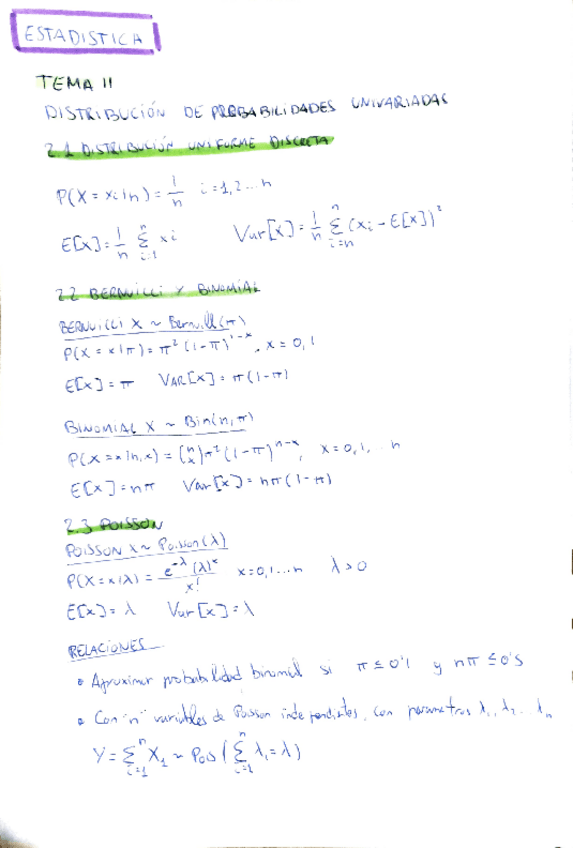 ESTADISTICA
TEMA II
DISTRIBUCIÓN DE PROBABILIDADES UNIVARIADAS
2.1 DISTRIBUCIÓN UNIFORME DISCRETA
P(X = xi|n) = 1/n i = 1,2...n
E[X] = 1/n Σ_{i=1}^{n} xi Var[X] = 1/n Σ_{i=n}^{n} (xi - E[X])²
2.2 BERNUILLI Y BINOMIAL
BERNUILLI X ~ Bernuill(π)
P(X = x|π) = π² (1-π)^{1-x}, x = 0,1
E[X] = π VAR[X] = π(1-π)
BINOMIAL X ~ Bin(n,π)
P(X = x|n,x) = (n x) π² (1-π)^{n-x}, x = 0,1,.. n
E[X] = nπ Var[X] = nπ(1-π)
2.3 POISSON
POISSON X ~ Poisson(λ)
P(X = x|λ) = e^{-λ}(λ)^x / x! x = 0,1...n λ > 0
E[X] = λ Var[X] = λ
RELACIONES
• Aproximar probabilidad binomial si π ≤ 0'1 y nπ ≤ 0'5
• Con "n" variables de Poisson independientes, con parametros λ₁, λ₂... λn
Y = Σ_{i=1}^{n} X₁ ~ Pois(Σ_{i=1}^{n} λ₁ = λ)